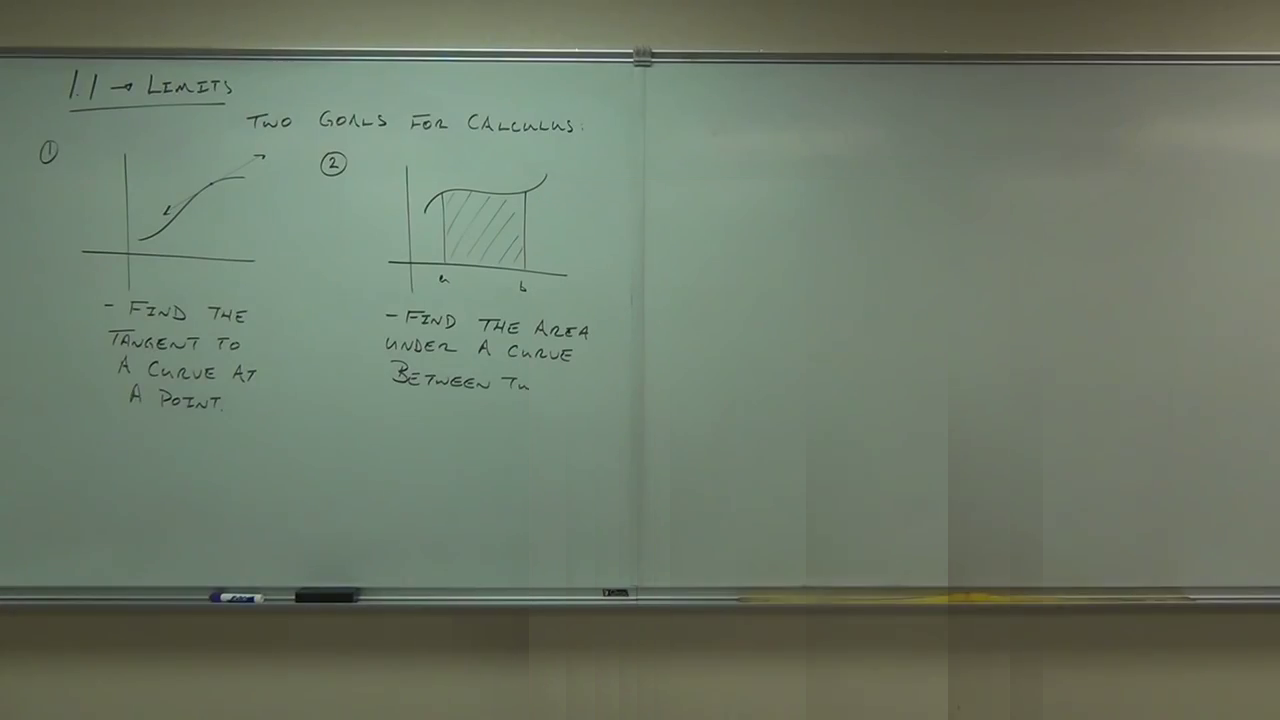 1.1 → LIMITS
TWO GOALS FOR CALCULUS:
①
- FIND THE
TANGENT TO
A CURVE AT
A POINT.
②
a b
- FIND THE AREA
UNDER A CURVE
BETWEEN TW